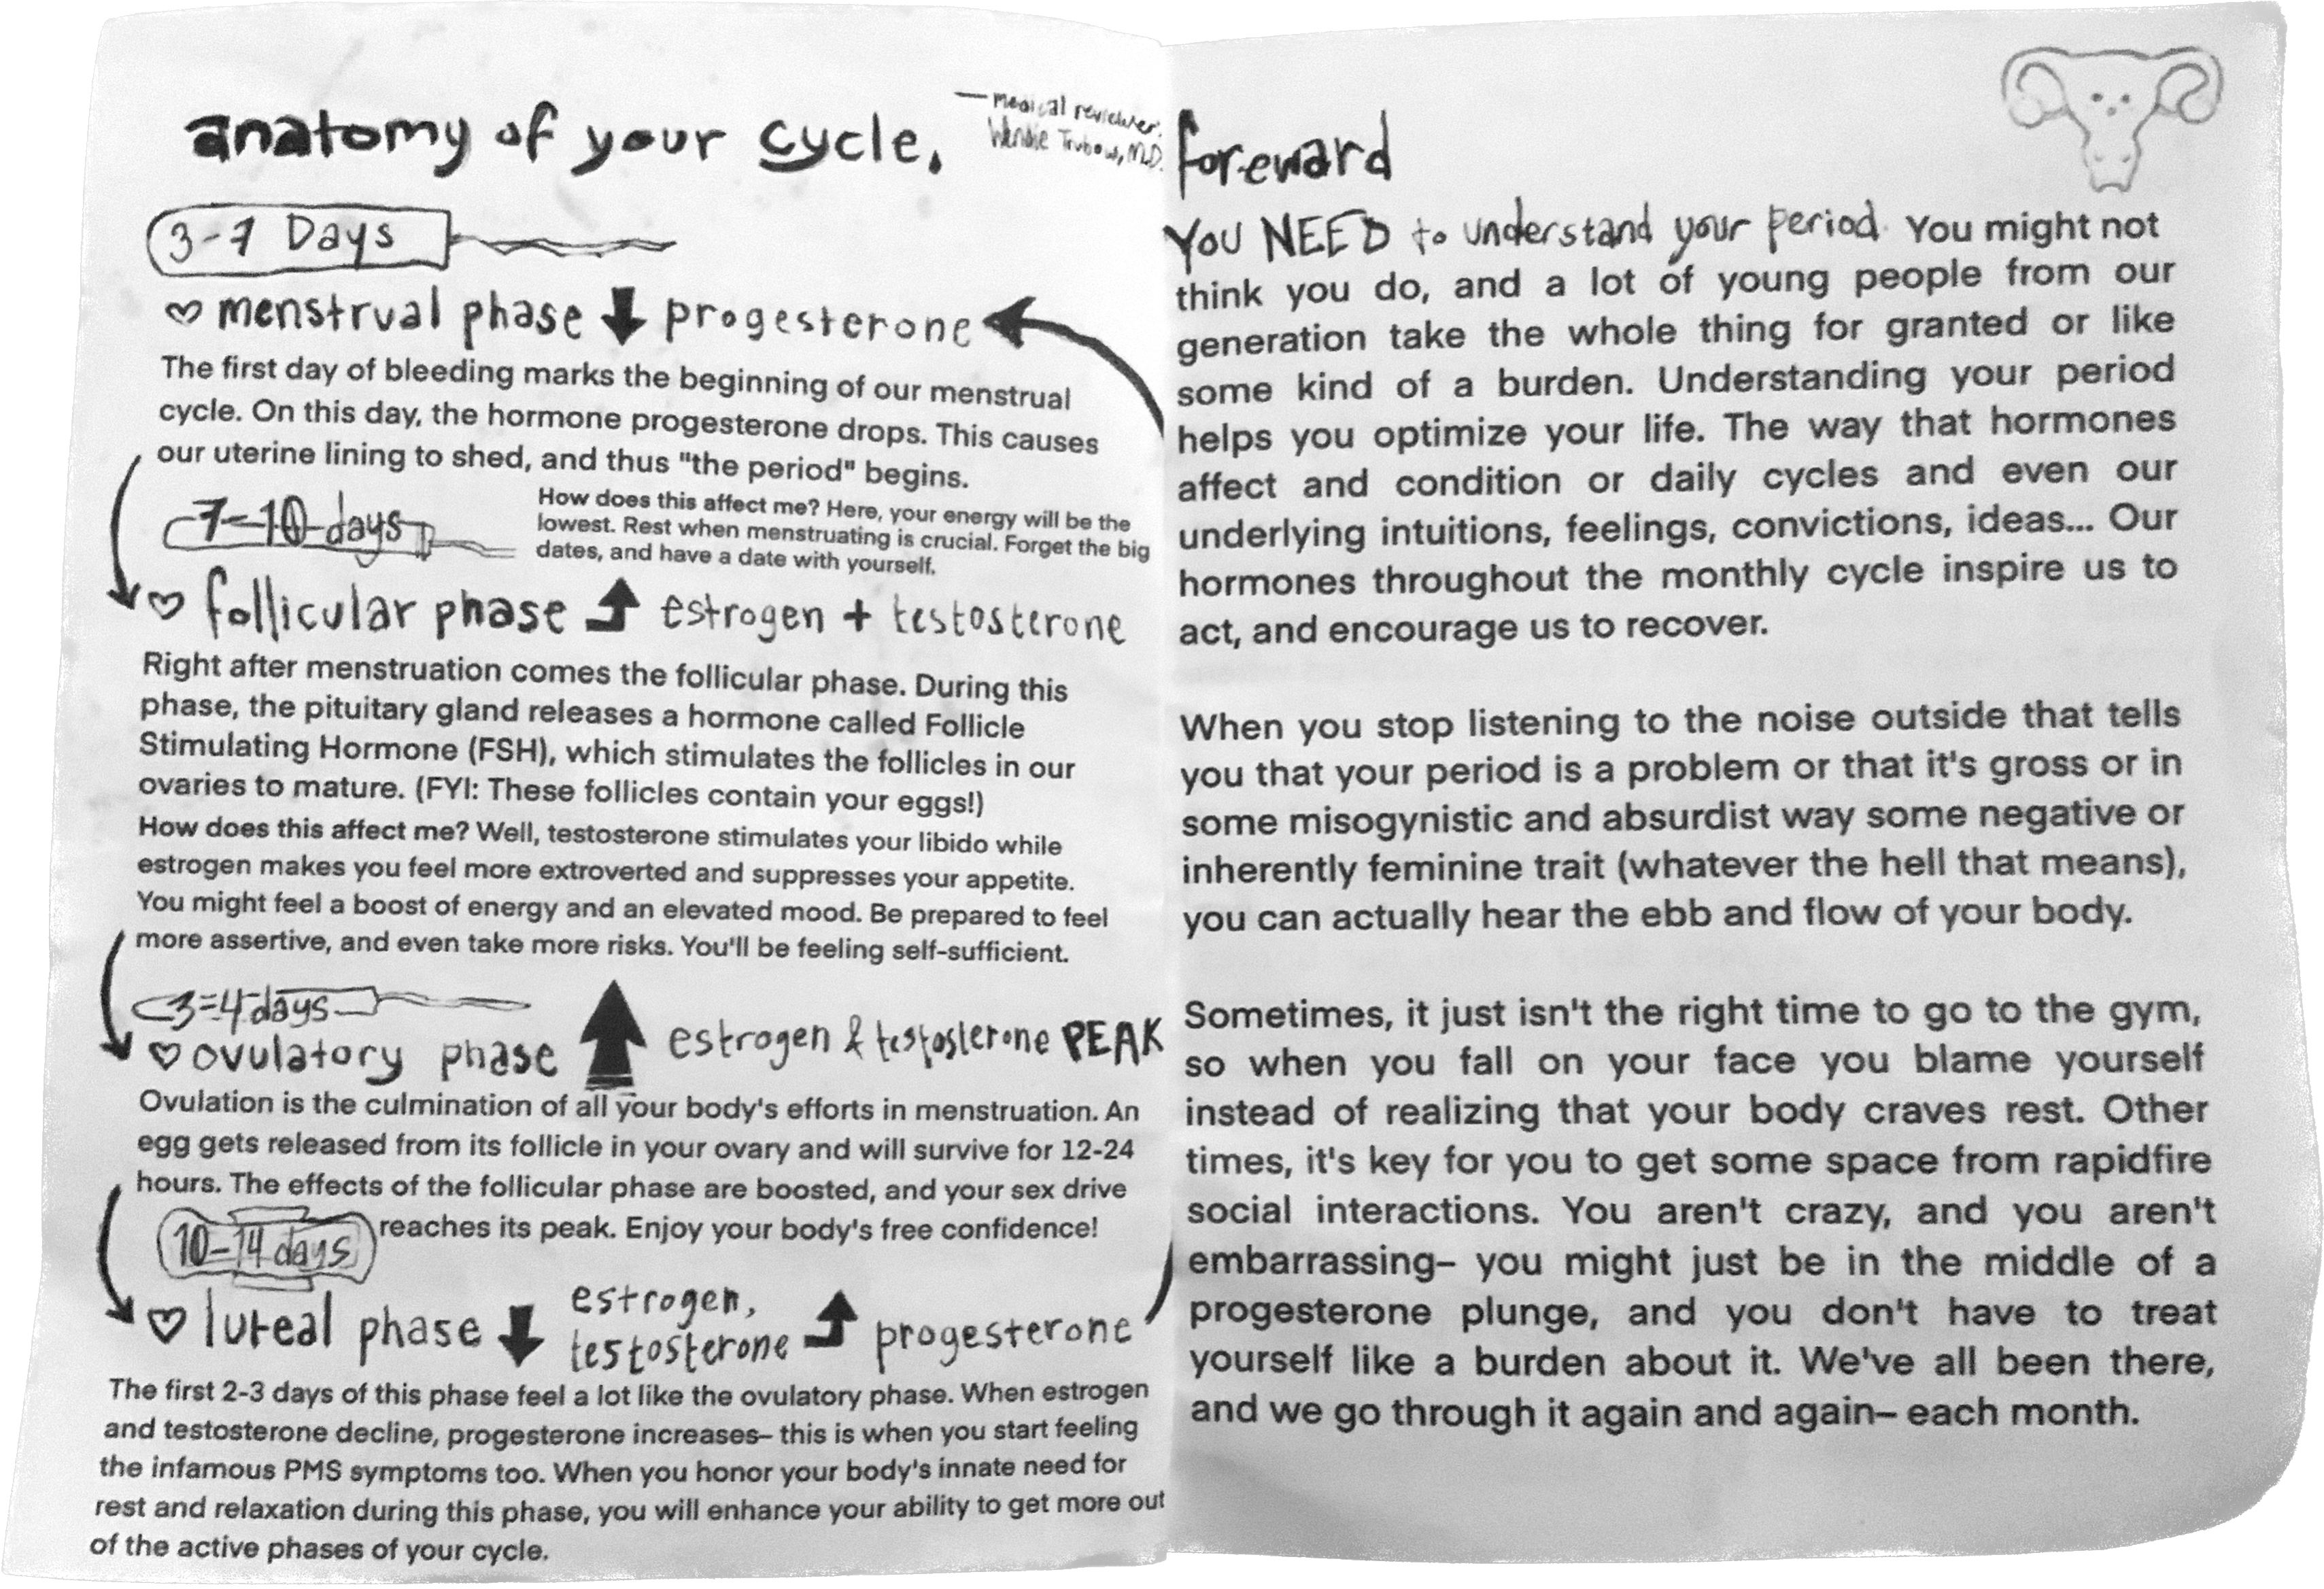 anatomy of your cycle.
— medical reviewer:
Wendie Trubow, M.D.
3-7 Days
♡ menstrual phase ⬇ progesterone
The first day of bleeding marks the beginning of our menstrual
cycle. On this day, the hormone progesterone drops. This causes
our uterine lining to shed, and thus "the period" begins.
How does this affect me? Here, your energy will be the
lowest. Rest when menstruating is crucial. Forget the big
dates, and have a date with yourself.
7-10 days
♡ follicular phase ⬆ estrogen + testosterone
Right after menstruation comes the follicular phase. During this
phase, the pituitary gland releases a hormone called Follicle
Stimulating Hormone (FSH), which stimulates the follicles in our
ovaries to mature. (FYI: These follicles contain your eggs!)
How does this affect me? Well, testosterone stimulates your libido while
estrogen makes you feel more extroverted and suppresses your appetite.
You might feel a boost of energy and an elevated mood. Be prepared to feel
more assertive, and even take more risks. You'll be feeling self-sufficient.
3-4 days
♡ ovulatory phase ⬆ estrogen & testosterone PEAK
Ovulation is the culmination of all your body's efforts in menstruation. An
egg gets released from its follicle in your ovary and will survive for 12-24
hours. The effects of the follicular phase are boosted, and your sex drive
reaches its peak. Enjoy your body's free confidence!
10-14 days
♡ luteal phase ⬇ estrogen, testosterone ⬆ progesterone
The first 2-3 days of this phase feel a lot like the ovulatory phase. When estrogen
and testosterone decline, progesterone increases– this is when you start feeling
the infamous PMS symptoms too. When you honor your body's innate need for
rest and relaxation during this phase, you will enhance your ability to get more out
of the active phases of your cycle.
foreward
YOU NEED to understand your period. You might not
think you do, and a lot of young people from our
generation take the whole thing for granted or like
some kind of a burden. Understanding your period
helps you optimize your life. The way that hormones
affect and condition or daily cycles and even our
underlying intuitions, feelings, convictions, ideas... Our
hormones throughout the monthly cycle inspire us to
act, and encourage us to recover.
When you stop listening to the noise outside that tells
you that your period is a problem or that it's gross or in
some misogynistic and absurdist way some negative or
inherently feminine trait (whatever the hell that means),
you can actually hear the ebb and flow of your body.
Sometimes, it just isn't the right time to go to the gym,
so when you fall on your face you blame yourself
instead of realizing that your body craves rest. Other
times, it's key for you to get some space from rapidfire
social interactions. You aren't crazy, and you aren't
embarrassing– you might just be in the middle of a
progesterone plunge, and you don't have to treat
yourself like a burden about it. We've all been there,
and we go through it again and again– each month.